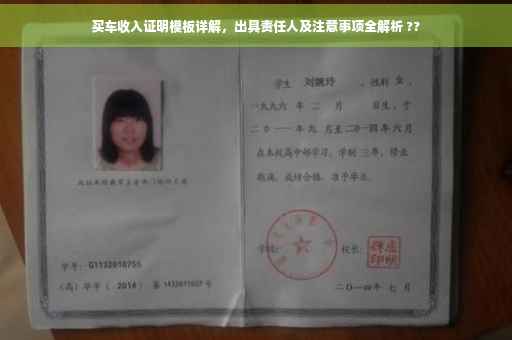 买车收入证明模板详解，出具责任人及注意事项全解析 ??
学生 刘婉玲 ，性别 女 ，
一九九六 年 二 月 日生，于
二〇一一 年 九 月至 二〇一四 年 六 月
在本校高中部学习，学制 三 年，修业
期满，成绩合格，准予毕业。
学校： 校长：
学号： G1132010755
（高）毕字（ 2014 ）第 1432011607 号
二〇一四年 七 月